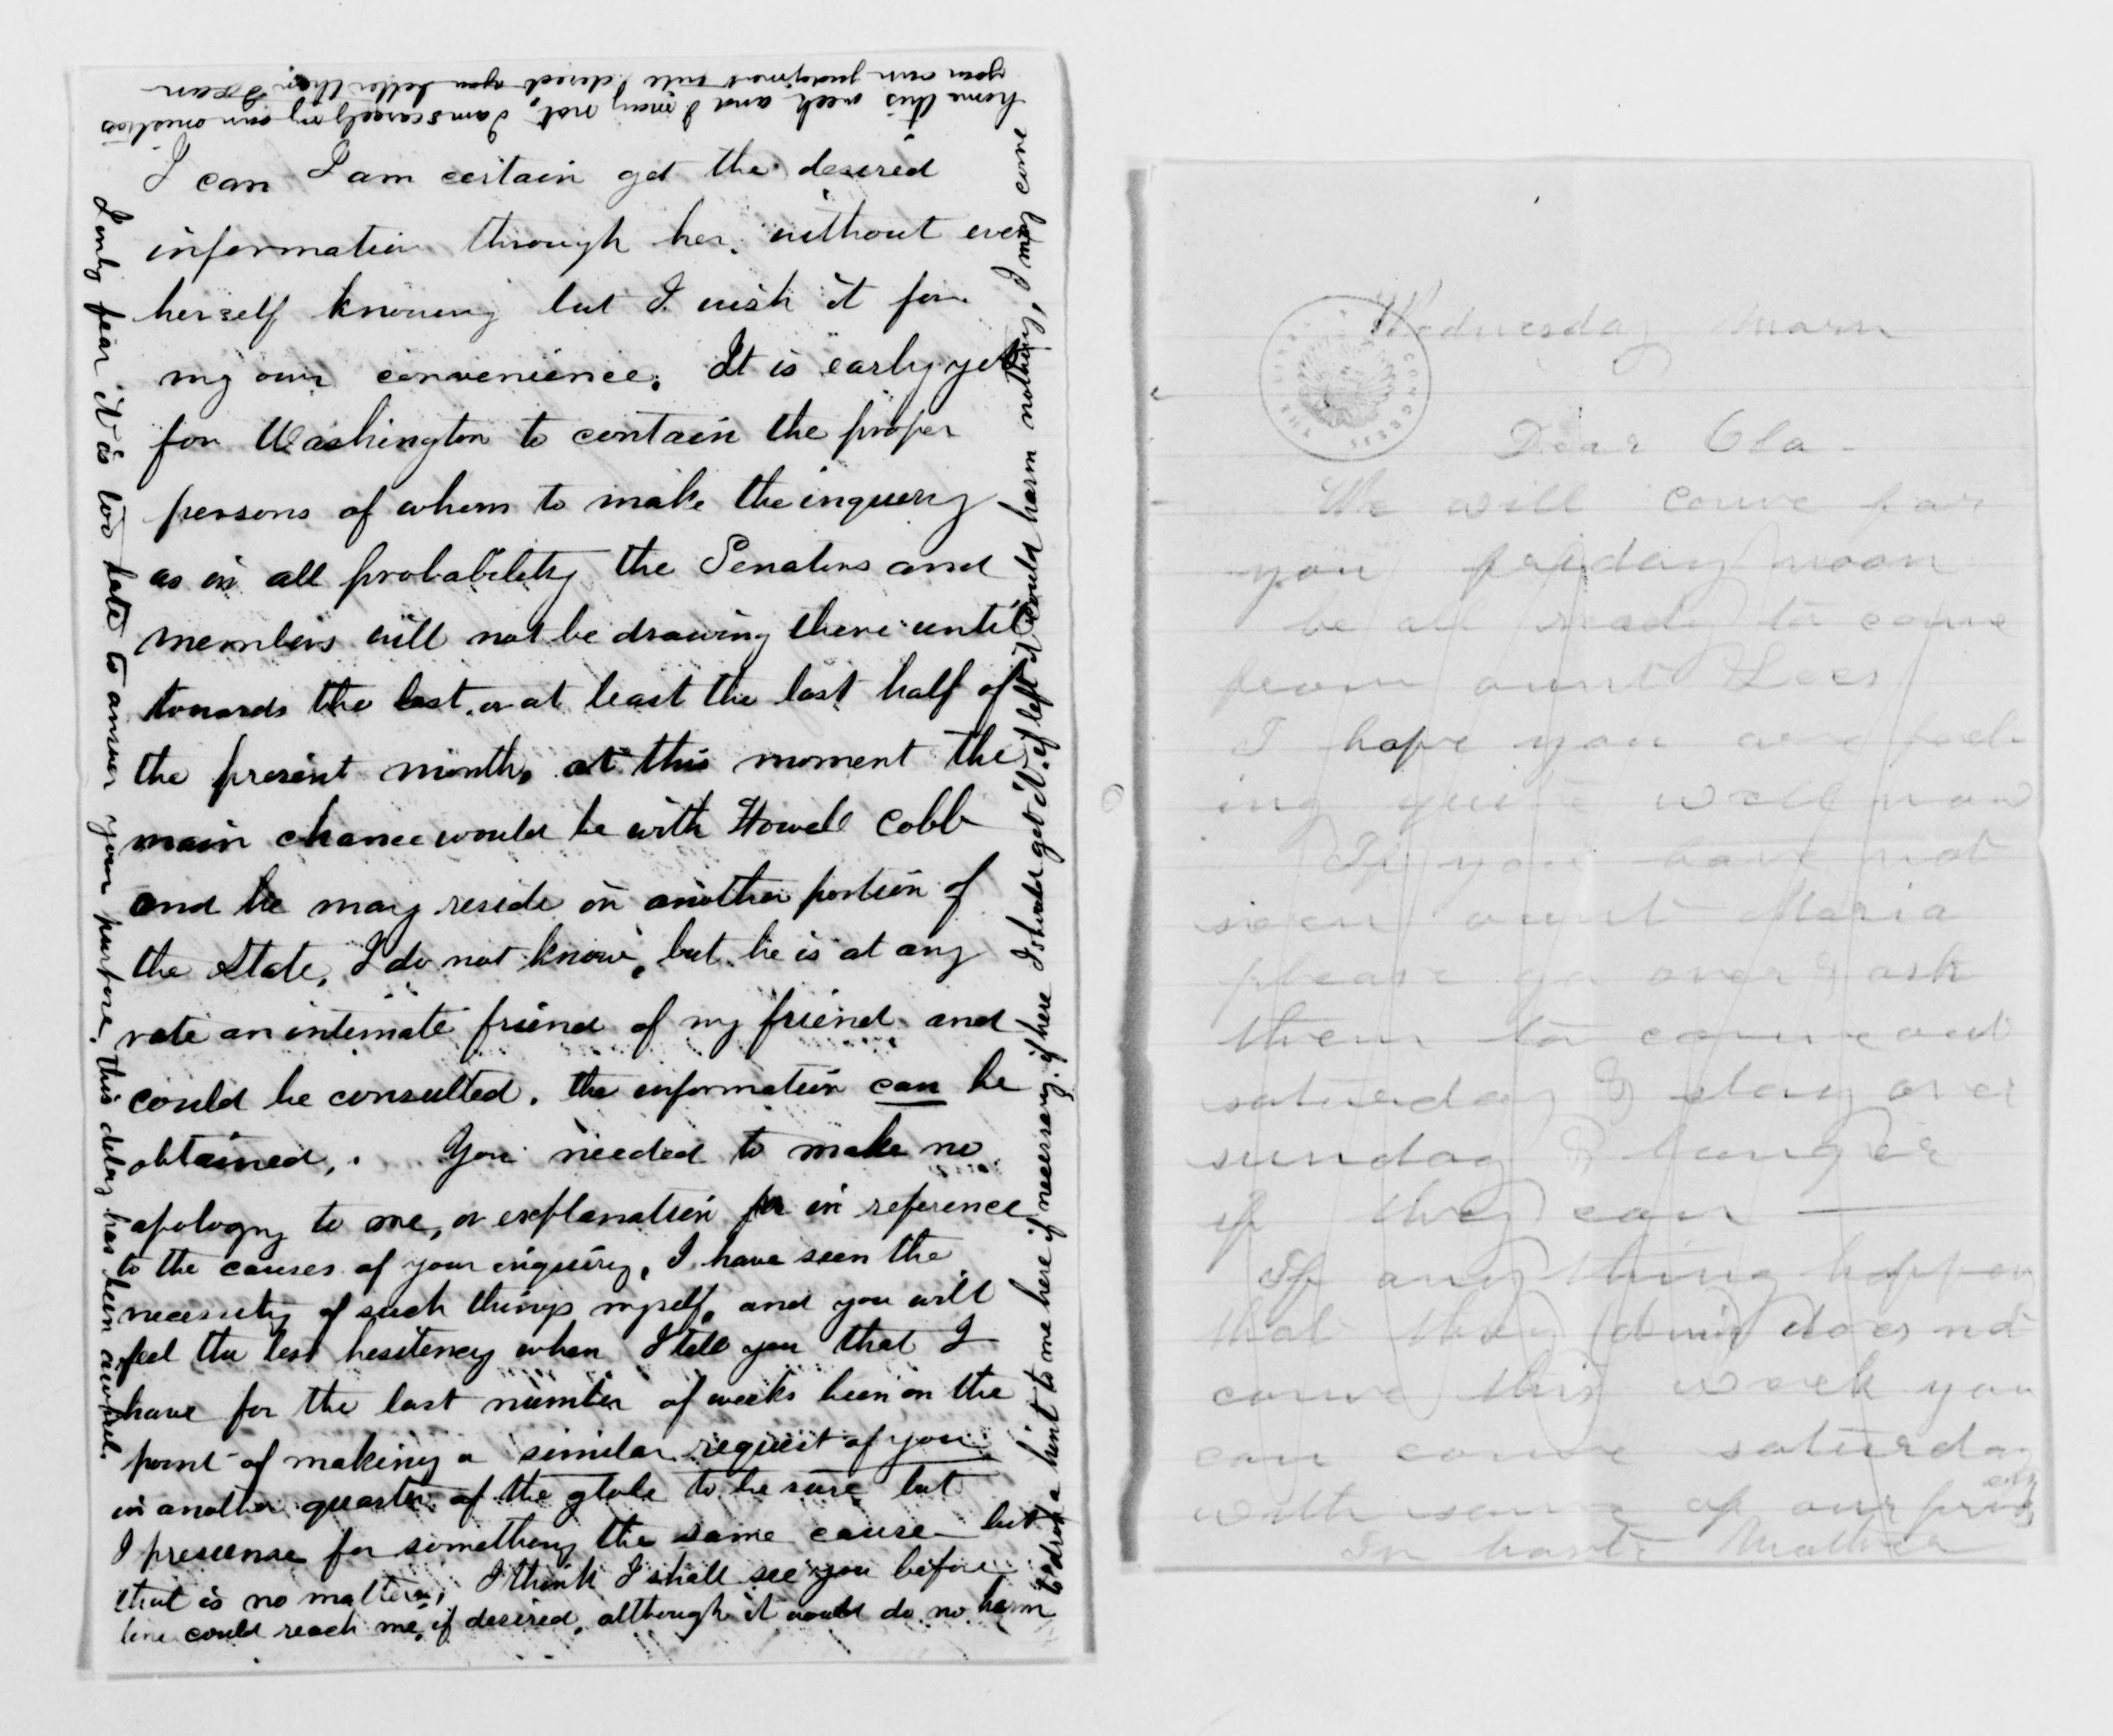 I can I am certain get the desired
information through her, without even
herself knowing but I wish it for
my own convenience. It is early yet
for Washington to contain the proper
persons of whom to make the inquery
as in all probability the Senators and
members will not be drawing there until
towards the last, or at least the last half of
the present month, at this moment the
main chance would be with Howell Cobb
and he may reside in another portion of
the State, I do not know, but he is at any
rate an intimate friend of my friend and
could be consulted. the information can be
obtained. You needed to make no
apology to me, or explanation in reference
to the causes of your inquiry, I have seen the
necessity of such things myself, and you will
feel the less hesitency when I tell you that I
have for the last number of weeks been on the
point of making a similar request of you
in another quarter of the globe to be sure but
I presume for something the same cause but
that is no matter, I think I shall see you before
line could reach me, if desired, although it would do no harm
to drop a hint to me here if necessary. if here I should get it, if left it could harm nothing, I may come
home this week and I may not, I am scarcely my own mistress
your own judgment will direct you better than I can
I only fear it is too late to answer your purpose, this delay has been awful.
Wednesday Morn
Dear Cla -
We will come for
you friday noon
be all ready to come
from aunt Lees
I hope you are feel
ing quite well now
If you have not
seen aunt Maria
please go over & ask
them to come out
saturday & stay over
sunday & longer
if they can —
If any thing happen
that they does not
come this week you
can come saturday
with some of our
In haste Mother
THE LIBRARY CONGRESS